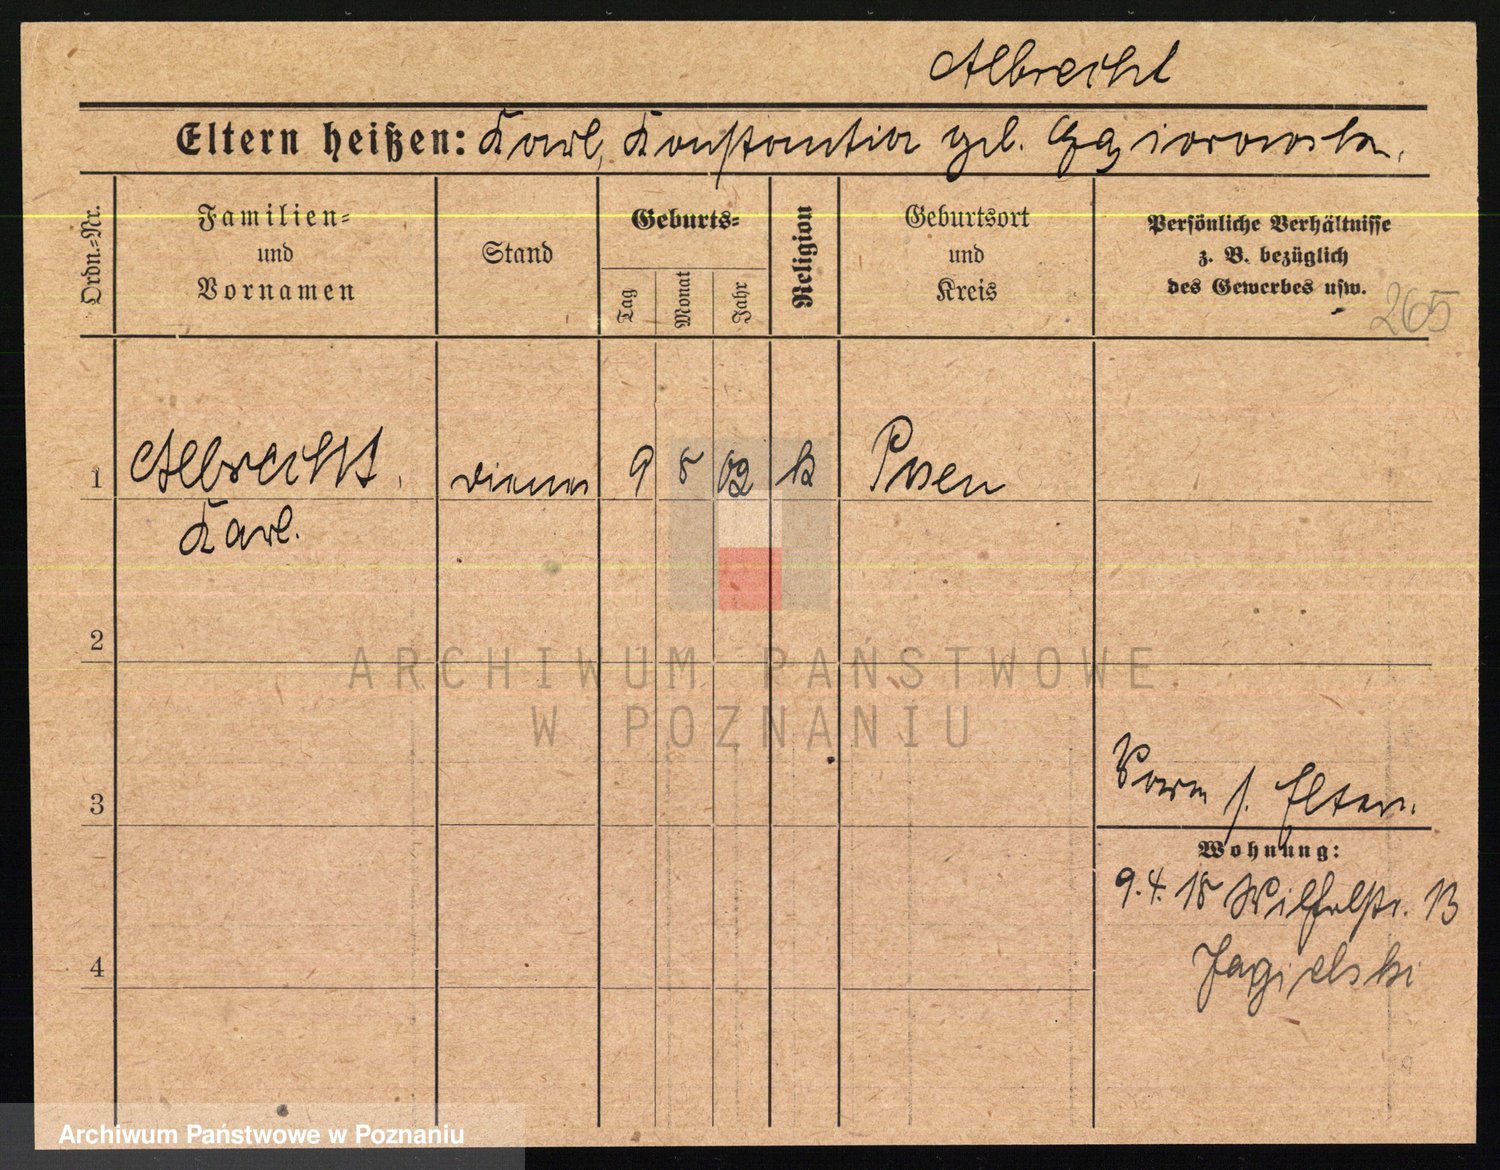 Albrecht
Eltern heißen: Karl, Konstantia geb.
Ordn.=Nr.
Familien=
und
Vornamen
Stand
Geburts=
Tag
Monat
Jahr
Religion
Geburtsort
und
Kreis
Persönliche Verhältnisse
z. B. bezüglich
des Gewerbes usw.
265
1 Albrecht, Diener 9 8 02 k Posen
Karl.
2
3
Vorm s. Eltern.
Wohnung:
9.4.18 Wilhelmstr. 13
Jagielski
4
ARCHIWUM PAŃSTWOWE
W POZNANIU
Archiwum Państwowe w Poznaniu